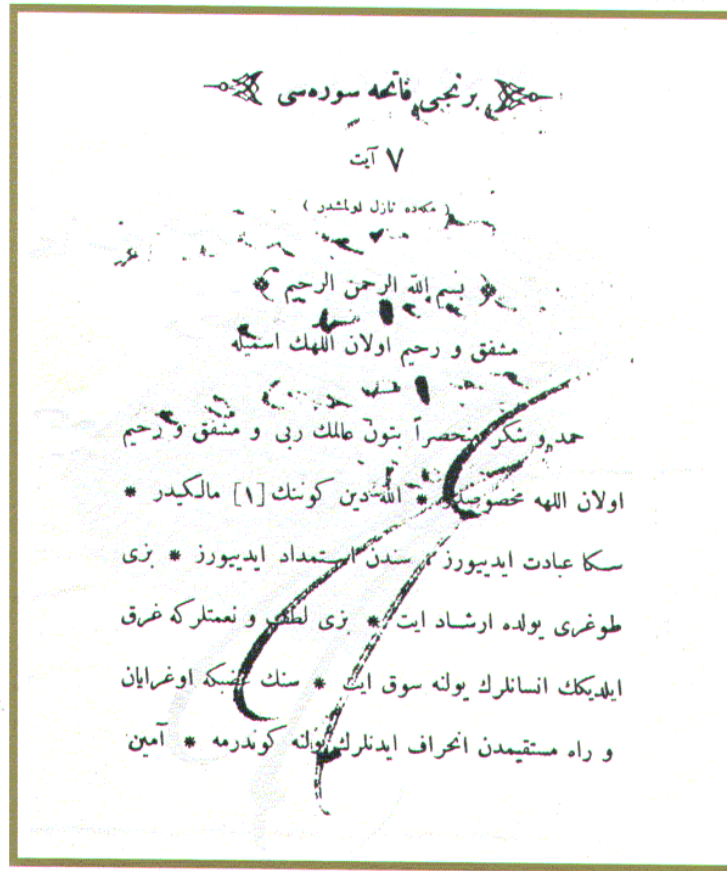 برنجی فاتحه سوره‌سی
٧ آیت
( مكه‌ده نازل اولمشدر )
بسم الله الرحمن الرحیم
مشفق و رحیم اولان اللهك اسمیله
حمد و شكر منحصراً بتون عالمك ربی و مشفق و رحیم
اولان اللهه مخصوصدر * الله دین كوننك [١] مالكیدر *
سكا عبادت ایدییورز سندن استمداد ایدییورز * بزی
طوغری یولده ارشاد ایت * بزی لطف و نعمتلركه غرق
ایلدیكك انسانلرك یولنه سوق ایت * سنك غضبكه اوغرایان
و راه مستقیمدن انحراف ایدنلرك یولنه كوندرمه * آمین